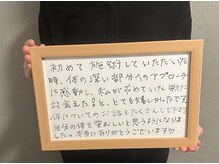 初めて施術していただいた
時、体の深い部分へのアプローチ
に感動し、私が求めていた物に
出会えた！と、とても嬉しかったです。
体についてのお話もたくさんして下さり
自分の体を愛おしいと思うようになれ
ました。本当にありがとうございます♡